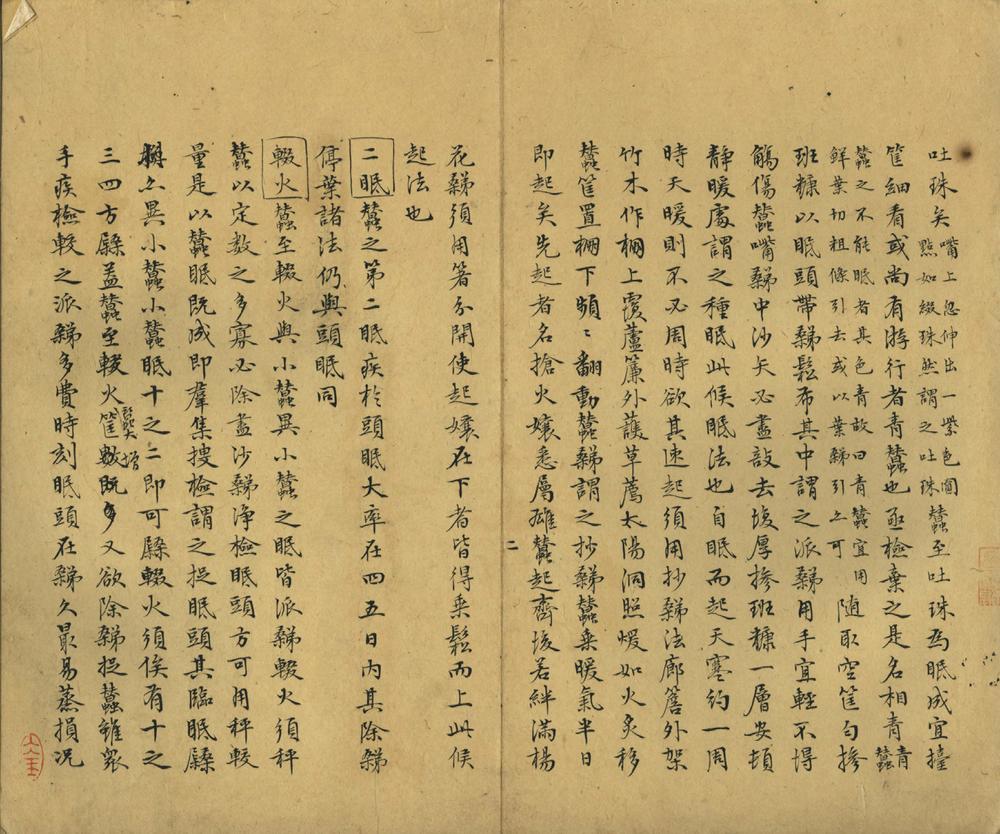 吐珠矣嘴上忽伸出一紫色圓點如綴珠然謂之吐珠蠶至吐珠為眠成宜擡
筐細看或尚有游行者青蠶也亟檢棄之是名相青青蠶
蠶之不能眠者其色青故曰青蠶宜用鮮葉切粗條引去或以葉䅥引之可隨取空筐勻摻
班糠以眠頭帶䅥鬆布其中謂之派䅥用手宜輕不得
觸傷蠶嘴䅥中沙矢必盡敲去後厚摻班糠一層安頓
靜暖處謂之種眠此候眠法也自眠而起天寒約一周
時天暖則不必周時欲其速起須用抄䅥法廊簷外架
竹木作棚上覆蘆簾外護草薦太陽洞照煖如火炙移
蠶筐置棚下頻〻翻動蠶䅥謂之抄䅥蠶乘暖氣半日
即起矣先起者名搶火孃悉屬雄蠶起齊後若絆滿楊
二
花䅥須用箸分開使起孃在下者皆得乘鬆而上此候
起法也
二眠蠶之第二眠疾於頭眠大率在四五日內其除䅥
停葉諸法仍與頭眠同
輟火蠶至輟火與小蠶異小蠶之眠皆派䅥輟火須秤
蠶以定數之多寡必除盡沙䅥淨檢眠頭方可用秤較
量是以蠶眠既成即羣集搜檢謂之捉眠頭其臨眠縣
糠亦異小蠶小蠶眠十之二即可縣輟火須俟有十之
三四方縣蓋蠶至輟火筐數既多蠶大增又欲除䅥捉蠶雖衆
手疾檢較之派䅥多費時刻眠頭在䅥久最易蒸損況